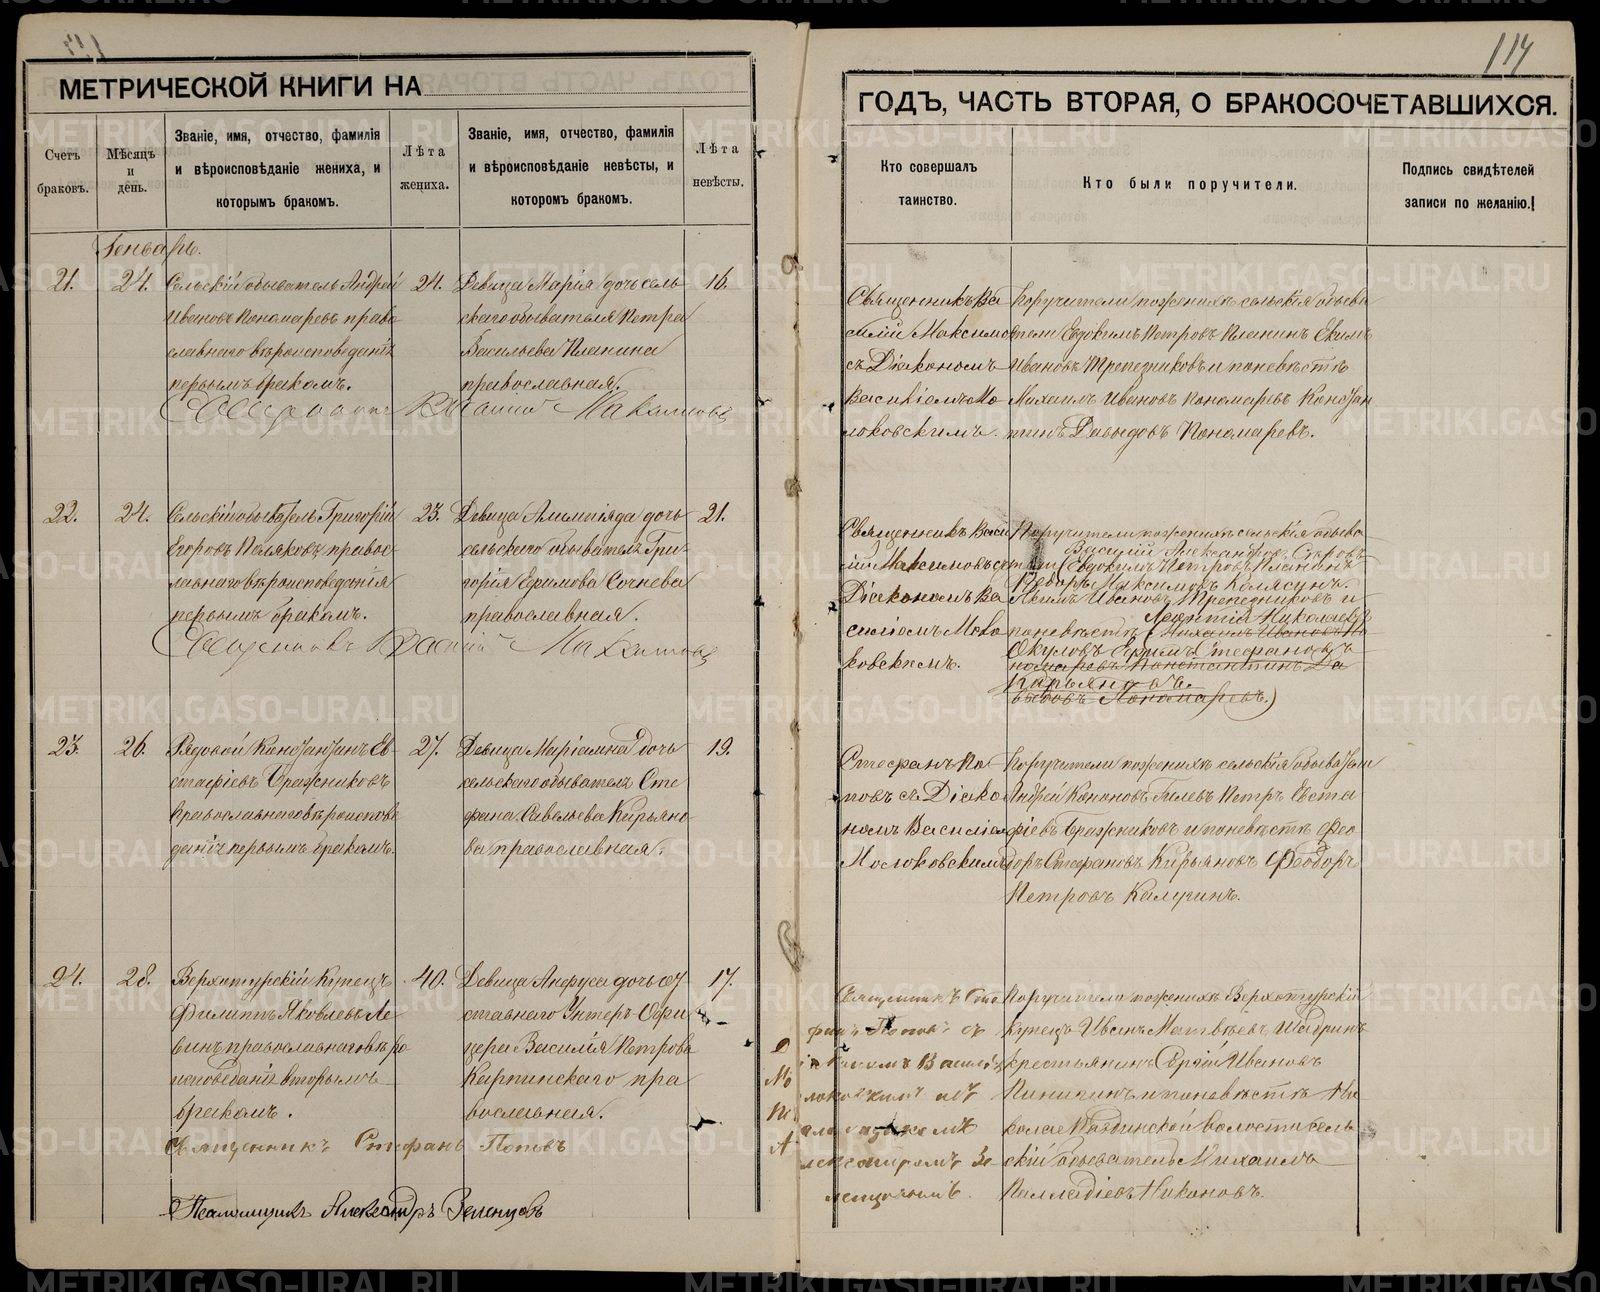 117
МЕТРИЧЕСКОЙ КНИГИ НА
Счетъ браковъ.
Мѣсяцъ и день.
Званіе, имя, отчество, фамилія
и вѣроисповѣданіе жениха, и
которымъ бракомъ.
Лѣта
жениха.
Званіе, имя, отчество, фамилія
и вѣроисповѣданіе невѣсты, и
которомъ бракомъ.
Лѣта
невѣсты.
Генварь.
21.
24.
Сельскій обыватель Андрей
Ивановъ Пономаревъ право
славнаго вѣроисповеданія
первымъ бракомъ.
24.
Девица Марія дочь сель
скаго обывателя Петра
Васильева Планина
православная.
16.
Священникъ Василій Максимовъ
22.
24.
Сельскій обыватель Григорій
Егоровъ Поляковъ правос
лавнаго вѣроисповеданія
первымъ бракомъ.
23.
Девица Алимпіяда дочь
сельскаго обывателя Гри
горія Ефимова Сочнева
православная.
21.
Священникъ Василій Максимовъ
23.
26.
Рядовой Константинъ Ев
стафіевъ Бражниковъ
православнаго вѣроисповѣ
данія первымъ бракомъ.
27.
Девица Маріамна дочь
сельскаго обывателя Сте
фана Савельева Кирьяно
ва православная.
19.
24.
28.
Верхотурскій Купецъ
Филиппъ Яковлевъ Ле
винъ православнаго вѣро
исповѣданія вторымъ
бракомъ.
40.
Девица Анфуса дочь от
ставнаго Унтеръ Офи
цера Василія Петрова
Карпинскаго пра
вославная.
17.
Священникъ Стефанъ Поповъ
Псаломщикъ Александръ Зеленцовъ
ГОДЪ, ЧАСТЬ ВТОРАЯ, О БРАКОСОЧЕТАВШИХСЯ.
Кто совершалъ
таинство.
Кто были поручители.
Подпись свидѣтелей
записи по желанію.
Священникъ Ва
силій Максимовъ
съ Діакономъ
Василіемъ Мо
локовскимъ.
Поручители по женихѣ сельскія обыва
тели Евдокимъ Петровъ Планинъ Екимъ
Ивановъ Трапезниковъ и по невѣстѣ
Михаилъ Ивановъ Пономаревъ Констан
тинъ Давыдовъ Пономаревъ.
Священникъ Васи
лій Максимовъ съ
Діакономъ Ва
силіемъ Моло
ковскимъ.
Поручители по женихѣ сельскія обыва
Василій Александровъ Сыровъ
тели (Евдокимъ Петровъ Планинъ
Федоръ Максимовъ Колясинъ.
Якимъ Ивановъ Трапезниковъ и
Леонтій Николаевъ
по невѣстѣ (Михаилъ Ивановъ По
Окуловъ Ефимъ Стефановъ
номаревъ Константинъ Да
Кирьяновъ.
выдовъ Пономаревъ.)
Стефанъ По
повъ съ Діако
номъ Василіем
Молоковскимъ
Поручители по женихѣ сельскія обыватели
Андрей Кононовъ Гилевъ Петръ Евста
фіевъ Бражниковъ и по невѣстѣ Фео
доръ Стефановъ Кирьяновъ Феодоръ
Петровъ Калугинъ.
Священникъ Сте
фанъ Поповъ съ
Поручители по женихѣ Верхотурскій
Купецъ Иванъ Матвѣевъ Шадринъ
крестьянинъ Сергій Ивановъ
Пинигинъ и по невѣстѣ Ни
скій обыватель Михаилъ
Палладіевъ Никоновъ.
METRIKI.GASO-URAL.RU